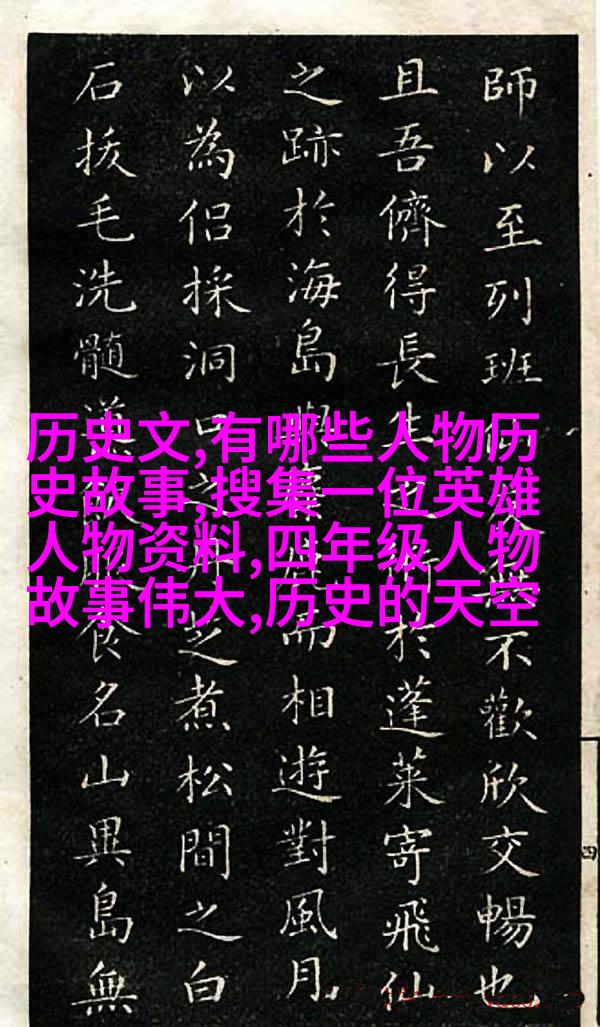 历史文,有哪些人物历
史故事,搜集一位英雄
人物资料,四年级人物
故事伟大,历史的天空
師以至列班不歡欣交暢也
且吾儕得長生於蓬萊寄飛仙
之跡於海島而相遊對風月
以為侶採洞口之芝煮松間之白
石拔毛洗髓食名山異島無